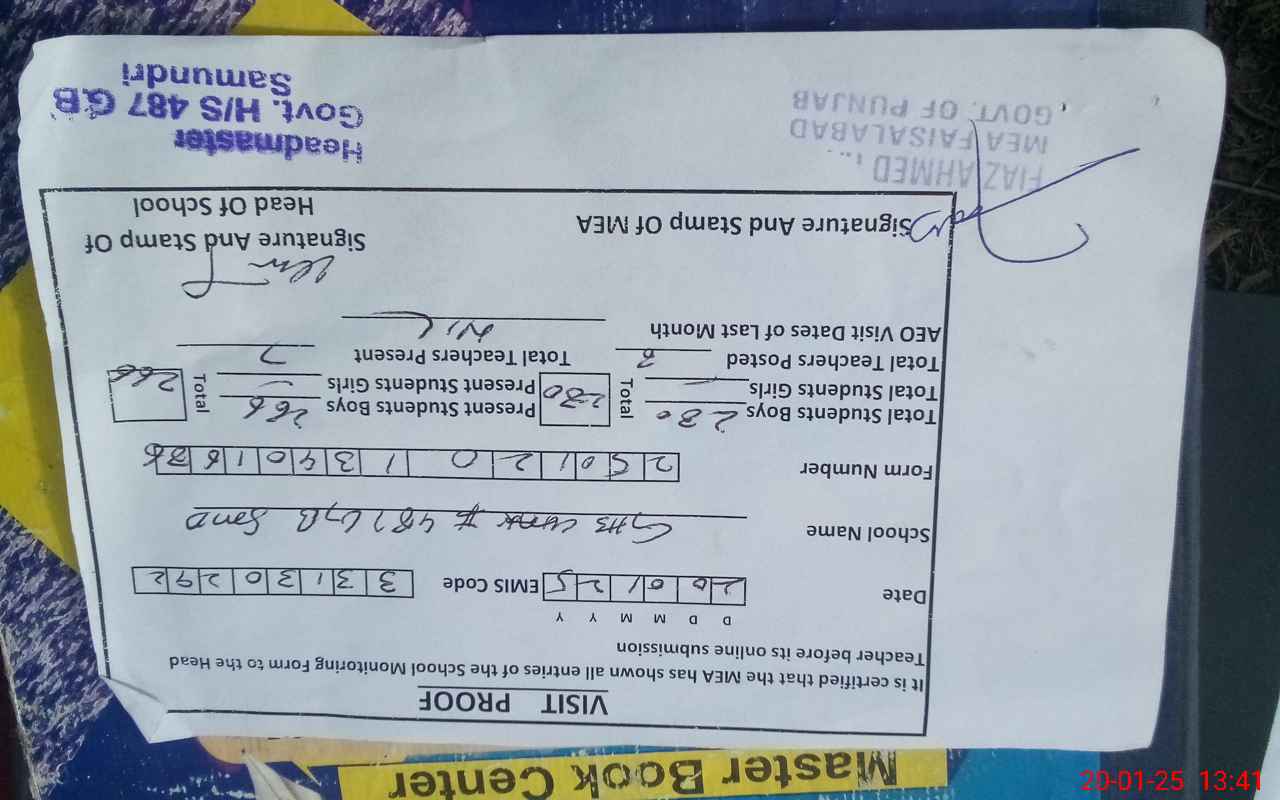 Master Book Center
VISIT PROOF
It is certified that the MEA has shown all entries of the School Monitoring Form to the Head
Teacher before its online submission
D D M M Y Y
Date 2 0 0 1 2 5 EMIS Code 3 3 1 3 0 2 9 2
School Name GHS # 487 GB SmD
Form Number 2 5 0 1 2 0 1 3 4 0 1 6
Total Students Boys 280 Total 280 Present Students Boys 266 Total 266
Total Students Girls — Present Students Girls —
Total Teachers Posted 8 Total Teachers Present 7
AEO Visit Dates of Last Month Nil
Signature And Stamp Of MEA
Signature And Stamp Of
Head Of School
FIAZ AHMED
MEA FAISALABAD
GOVT. OF PUNJAB
Headmaster
Govt. H/S 487 GB
Samundri
20-01-25 13:41